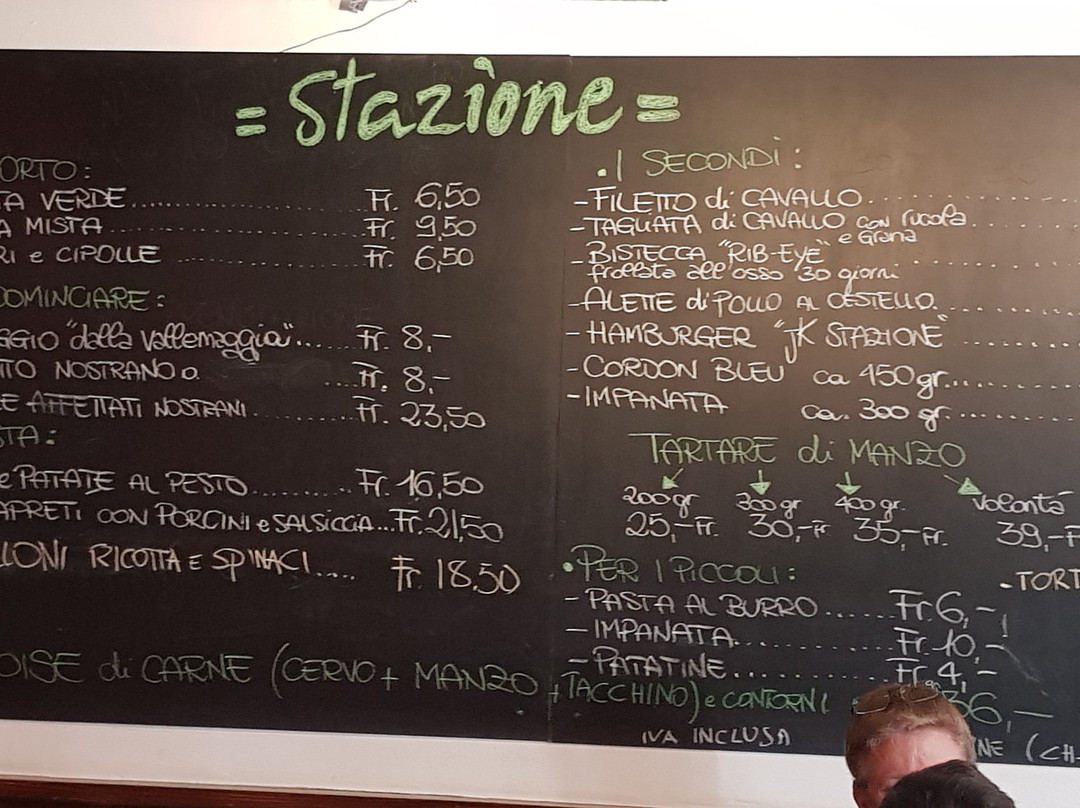 = Stazione =
ORTO:
TA VERDE.................... Fr. 6,50
A MISTA.................... Fr. 9,50
RI e CIPOLLE .................... Fr. 6,50
COMINCIARE:
GGIO "dalla Vallemaggia"...... Fr. 8,-
TTO NOSTRANO .... Fr. 8,-
E AFFETTATI NOSTRANI............ Fr. 23,50
STA:
e PATATE AL PESTO............ Fr. 16,50
APRETI CON PORCINI e SALSICCIA... Fr. 21,50
LONI RICOTTA E SPINACI.... Fr. 18.50
OISE di CARNE (CERVO + MANZO + TACCHINO) e CONTORNI 36,-
• I SECONDI:
- FILETTO di CAVALLO............
- TAGLIATA di CAVALLO con rucola
e Grana
- BISTECCA "RIB-EYE"
frollata all'osso 30 giorni
- ALETTE di POLLO AL CESTELLO............
- HAMBURGER "JK STAZIONE"
- CORDON BLEU ca 450 gr....
- IMPANATA ca. 300 gr....
TARTARE di MANZO
200 gr 300 gr 400 gr. Volontá
25,- Fr. 30,- Fr 35,- Fr. 39,- F
• PER I PICCOLI:
- TORT
- PASTA AL BURRO...... Fr. 6,-
- IMPANATA............ Fr. 10,-
- PATATINE............ Fr. 4,-
IVA INCLUSA
NE (CH-